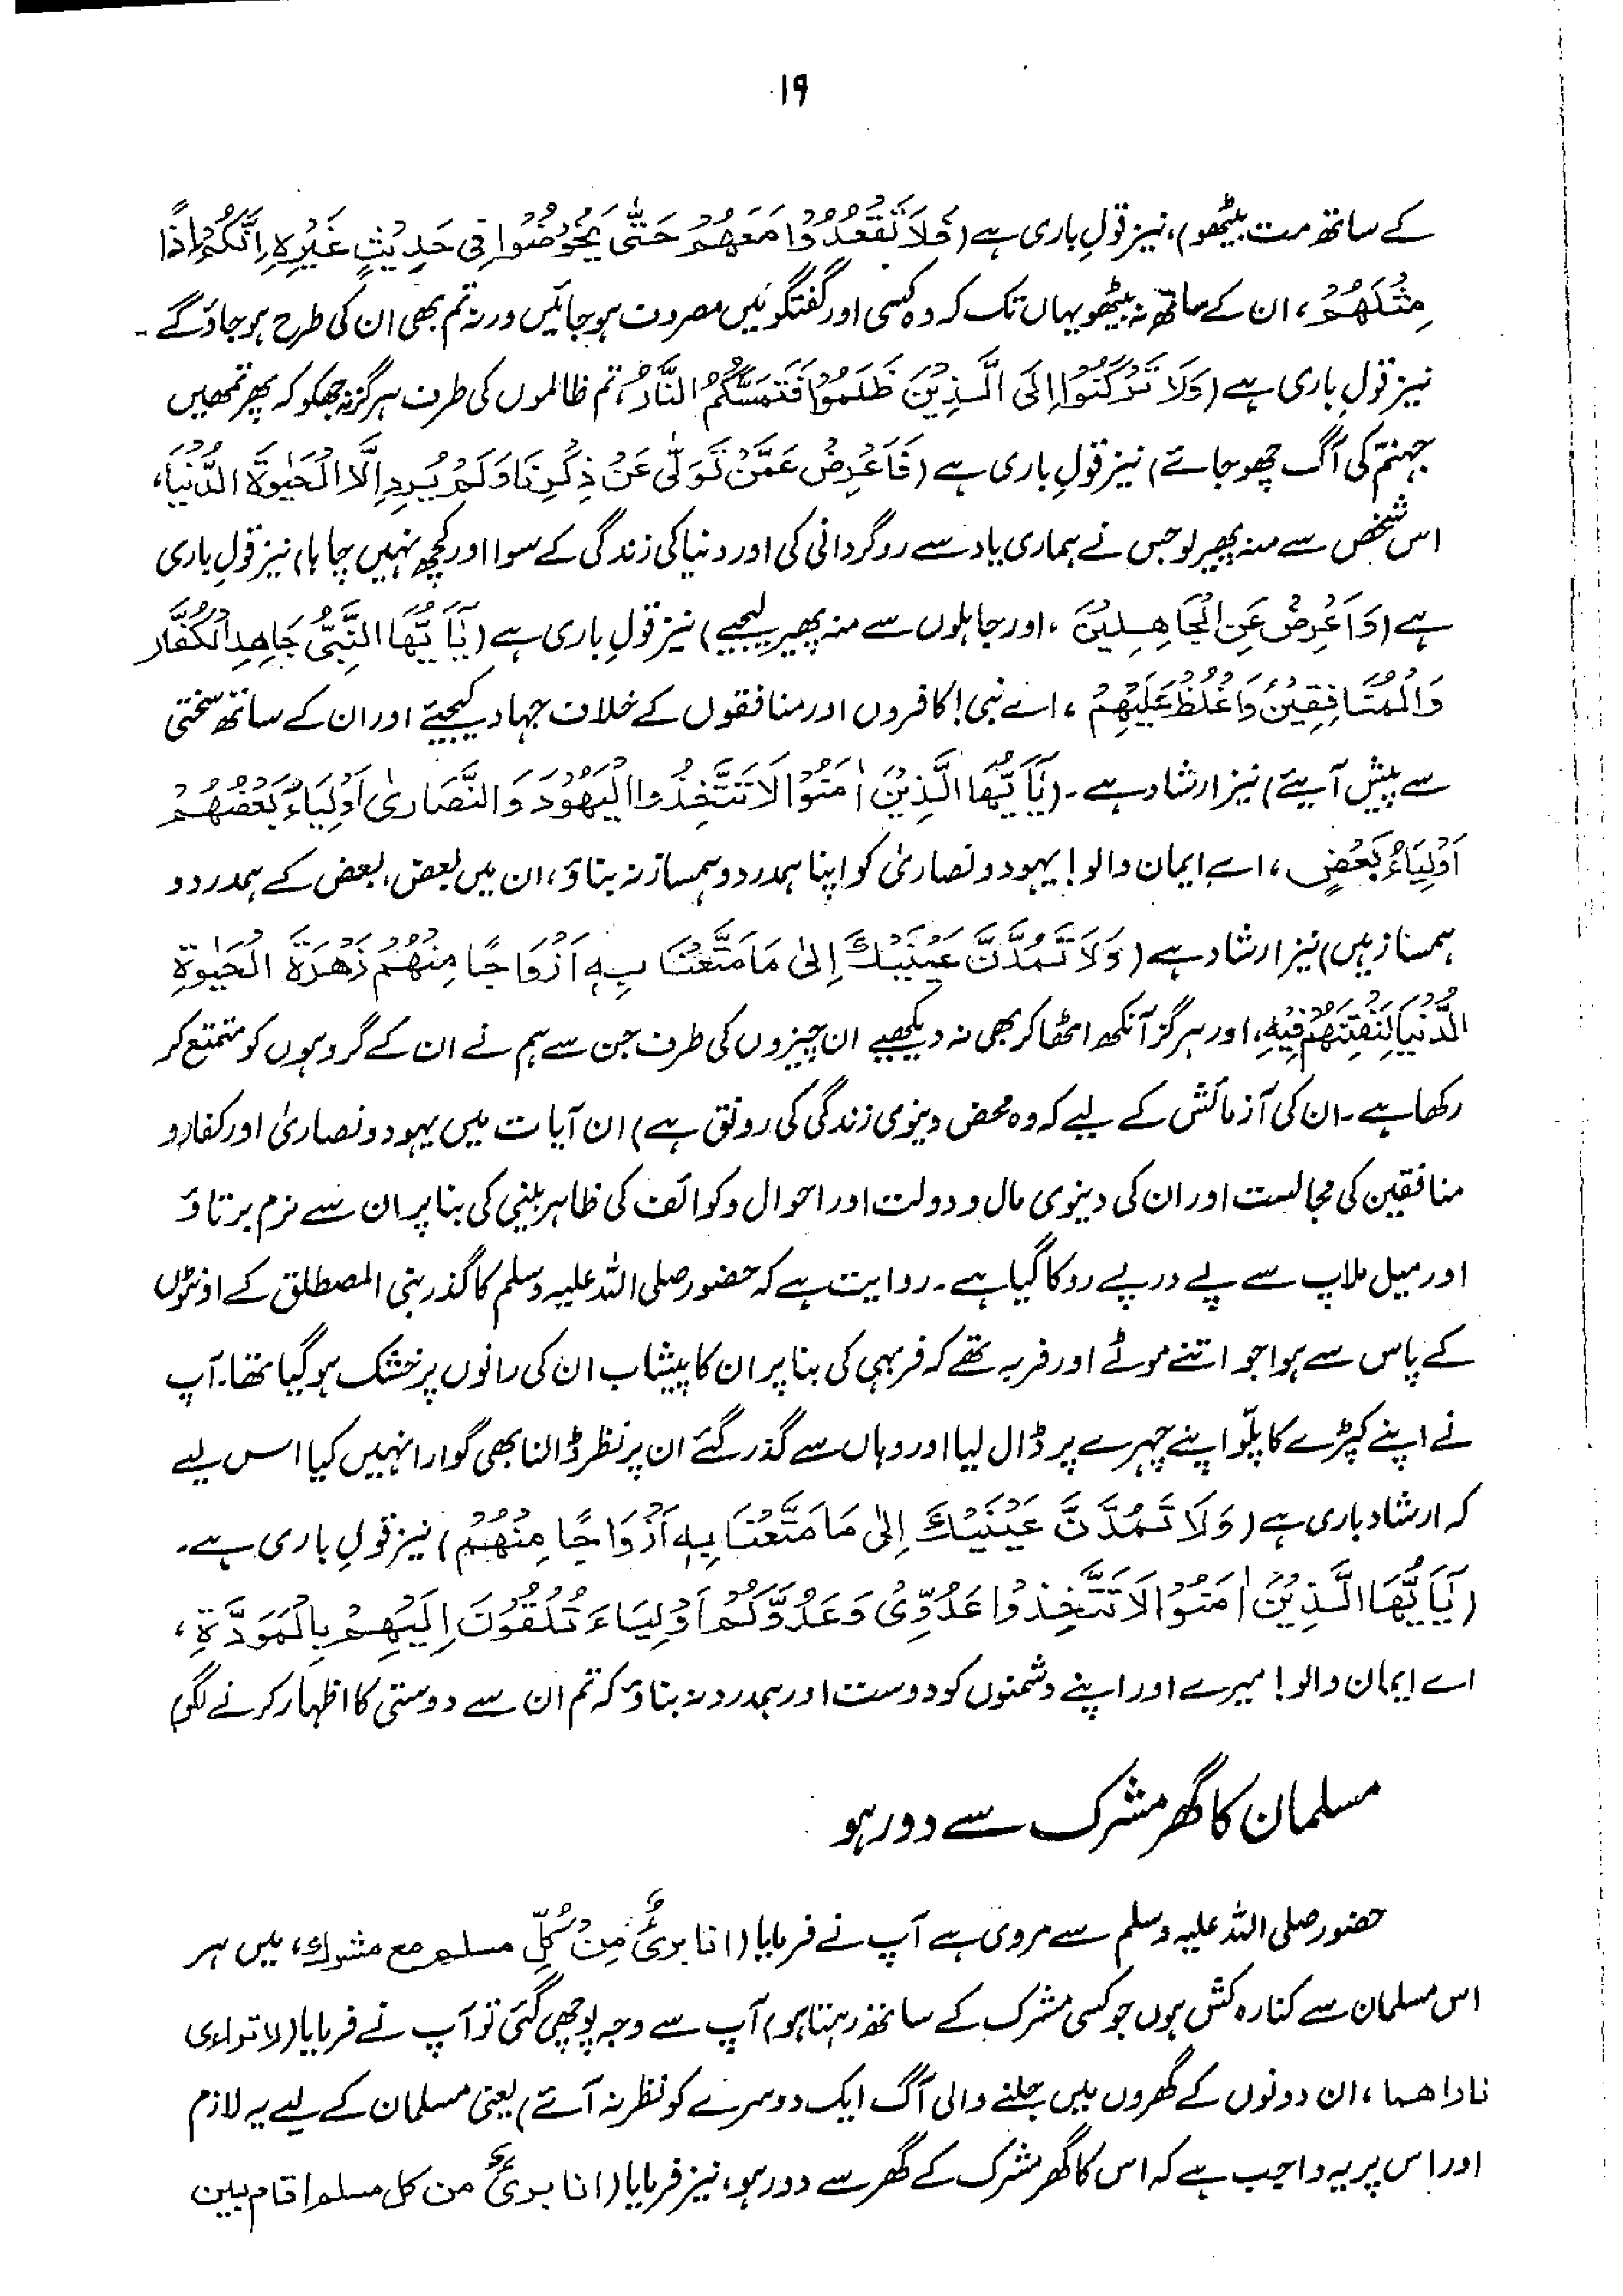 ۱۹
کے ساتھ مت بیٹھو)، نیز قولِ باری ہے (فَلَا تَقْعُدُوْا مَعَهُمْ حَتّٰى يَخُوْضُوْا فِى حَدِيْثٍ غَيْرِهٖ اِنَّكُمْ اِذًا
مِثْلُهُمْ، ان کے ساتھ نہ بیٹھو یہاں تک کہ وہ کسی اور گفتگو میں مصروف ہو جائیں ورنہ تم بھی ان کی طرح ہو جاؤ گے۔
نیز قولِ باری ہے (وَلَا تَرْكَنُوْا اِلَى الَّذِيْنَ ظَلَمُوْا فَتَمَسَّكُمُ النَّارُ، تم ظالموں کی طرف ہرگز نہ جھکو کہ پھر تمھیں
جہنّم کی آگ چھو جائے) نیز قولِ باری ہے (فَاَعْرِضْ عَمَّنْ تَوَلّٰى عَنْ ذِكْرِنَا وَلَمْ يُرِدْ اِلَّا الْحَيٰوةَ الدُّنْيَا،
اس شخص سے منہ پھیر لو جس نے ہماری یاد سے روگردانی کی اور دنیا کی زندگی کے سوا اور کچھ نہیں چاہا) نیز قولِ باری
ہے (وَاَعْرِضْ عَنِ الْجَاهِلِيْنَ، اور جاہلوں سے منہ پھیر لیجیے) نیز قولِ باری ہے (يٰٓاَيُّهَا النَّبِىُّ جَاهِدِ الْكُفَّارَ
وَالْمُنَافِقِيْنَ وَاغْلُظْ عَلَيْهِمْ، اے نبی! کافروں اور منافقوں کے خلاف جہاد کیجیئے اور ان کے ساتھ سختی
سے پیش آئیے) نیز ارشاد ہے۔ (يٰٓاَيُّهَا الَّذِيْنَ اٰمَنُوْا لَا تَتَّخِذُوا الْيَهُوْدَ وَالنَّصَارٰى اَوْلِيَاءَ بَعْضُهُمْ
اَوْلِيَاءُ بَعْضٍ، اے ایمان والو! یہود و نصاریٰ کو اپنا ہمدرد و ہمساز نہ بناؤ، ان میں بعض، بعض کے ہمدرد و
ہمساز ہیں) نیز ارشاد ہے (وَلَا تَمُدَّنَّ عَيْنَيْكَ اِلٰى مَا مَتَّعْنَا بِهٖ اَزْوَاجًا مِنْهُمْ زَهْرَةَ الْحَيٰوةِ
الدُّنْيَا لِنَفْتِنَهُمْ فِيْهِ، اور ہرگز آنکھ اٹھا کر بھی نہ دیکھیے ان چیزوں کی طرف جن سے ہم نے ان کے گروہوں کو متمتع کر
رکھا ہے۔ ان کی آزمائش کے لیے کہ وہ محض دینوی زندگی کی رونق ہے) ان آیات میں یہود و نصاریٰ اور کفار و
منافقین کی مجالست اور ان کی دینوی مال و دولت اور احوال و کوائف کی ظاہر بینی کی بنا پر ان سے نرم برتاؤ
اور میل ملاپ سے پے درپے روکا گیا ہے۔ روایت ہے کہ حضور صلی اللہ علیہ وسلم کا گذر بنی المصطلق کے اونٹوں
کے پاس سے ہوا جو اتنے موٹے اور فربہ تھے کہ فربہی کی بنا پر ان کا پیشاب ان کی رانوں پر خشک ہو گیا تھا۔ آپ
نے اپنے کپڑے کا پلّو اپنے چہرے پر ڈال لیا اور وہاں سے گذر گئے ان پر نظر ڈالنا بھی گوارا نہیں کیا اس لیے
کہ ارشاد باری ہے (وَلَا تَمُدَّنَّ عَيْنَيْكَ اِلٰى مَا مَتَّعْنَا بِهٖ اَزْوَاجًا مِنْهُمْ) نیز قولِ باری ہے۔
(يٰٓاَيُّهَا الَّذِيْنَ اٰمَنُوْا لَا تَتَّخِذُوْا عَدُوِّىْ وَعَدُوَّكُمْ اَوْلِيَاءَ تُلْقُوْنَ اِلَيْهِمْ بِالْمَوَدَّةِ،
اے ایمان والو! میرے اور اپنے دشمنوں کو دوست اور ہمدرد نہ بناؤ کہ تم ان سے دوستی کا اظہار کرنے لگو)
مسلمان کا گھر مشرک سے دور ہو
حضور صلی اللہ علیہ وسلم سے مروی ہے آپ نے فرمایا (انا برئٌ مِنْ كُلِّ مسلم مع مشرك، میں ہر
اس مسلمان سے کنارہ کش ہوں جو کسی مشرک کے ساتھ رہتا ہو) آپ سے وجہ پوچھی گئی تو آپ نے فرمایا (لا تراءى
ناراهما، ان دونوں کے گھروں میں جلنے والی آگ ایک دوسرے کو نظر نہ آئے) یعنی مسلمان کے لیے یہ لازم
اور اس پر یہ واجب ہے کہ اس کا گھر مشرک کے گھر سے دور ہو، نیز فرمایا (انا برئٌ من كل مسلم اقام بين